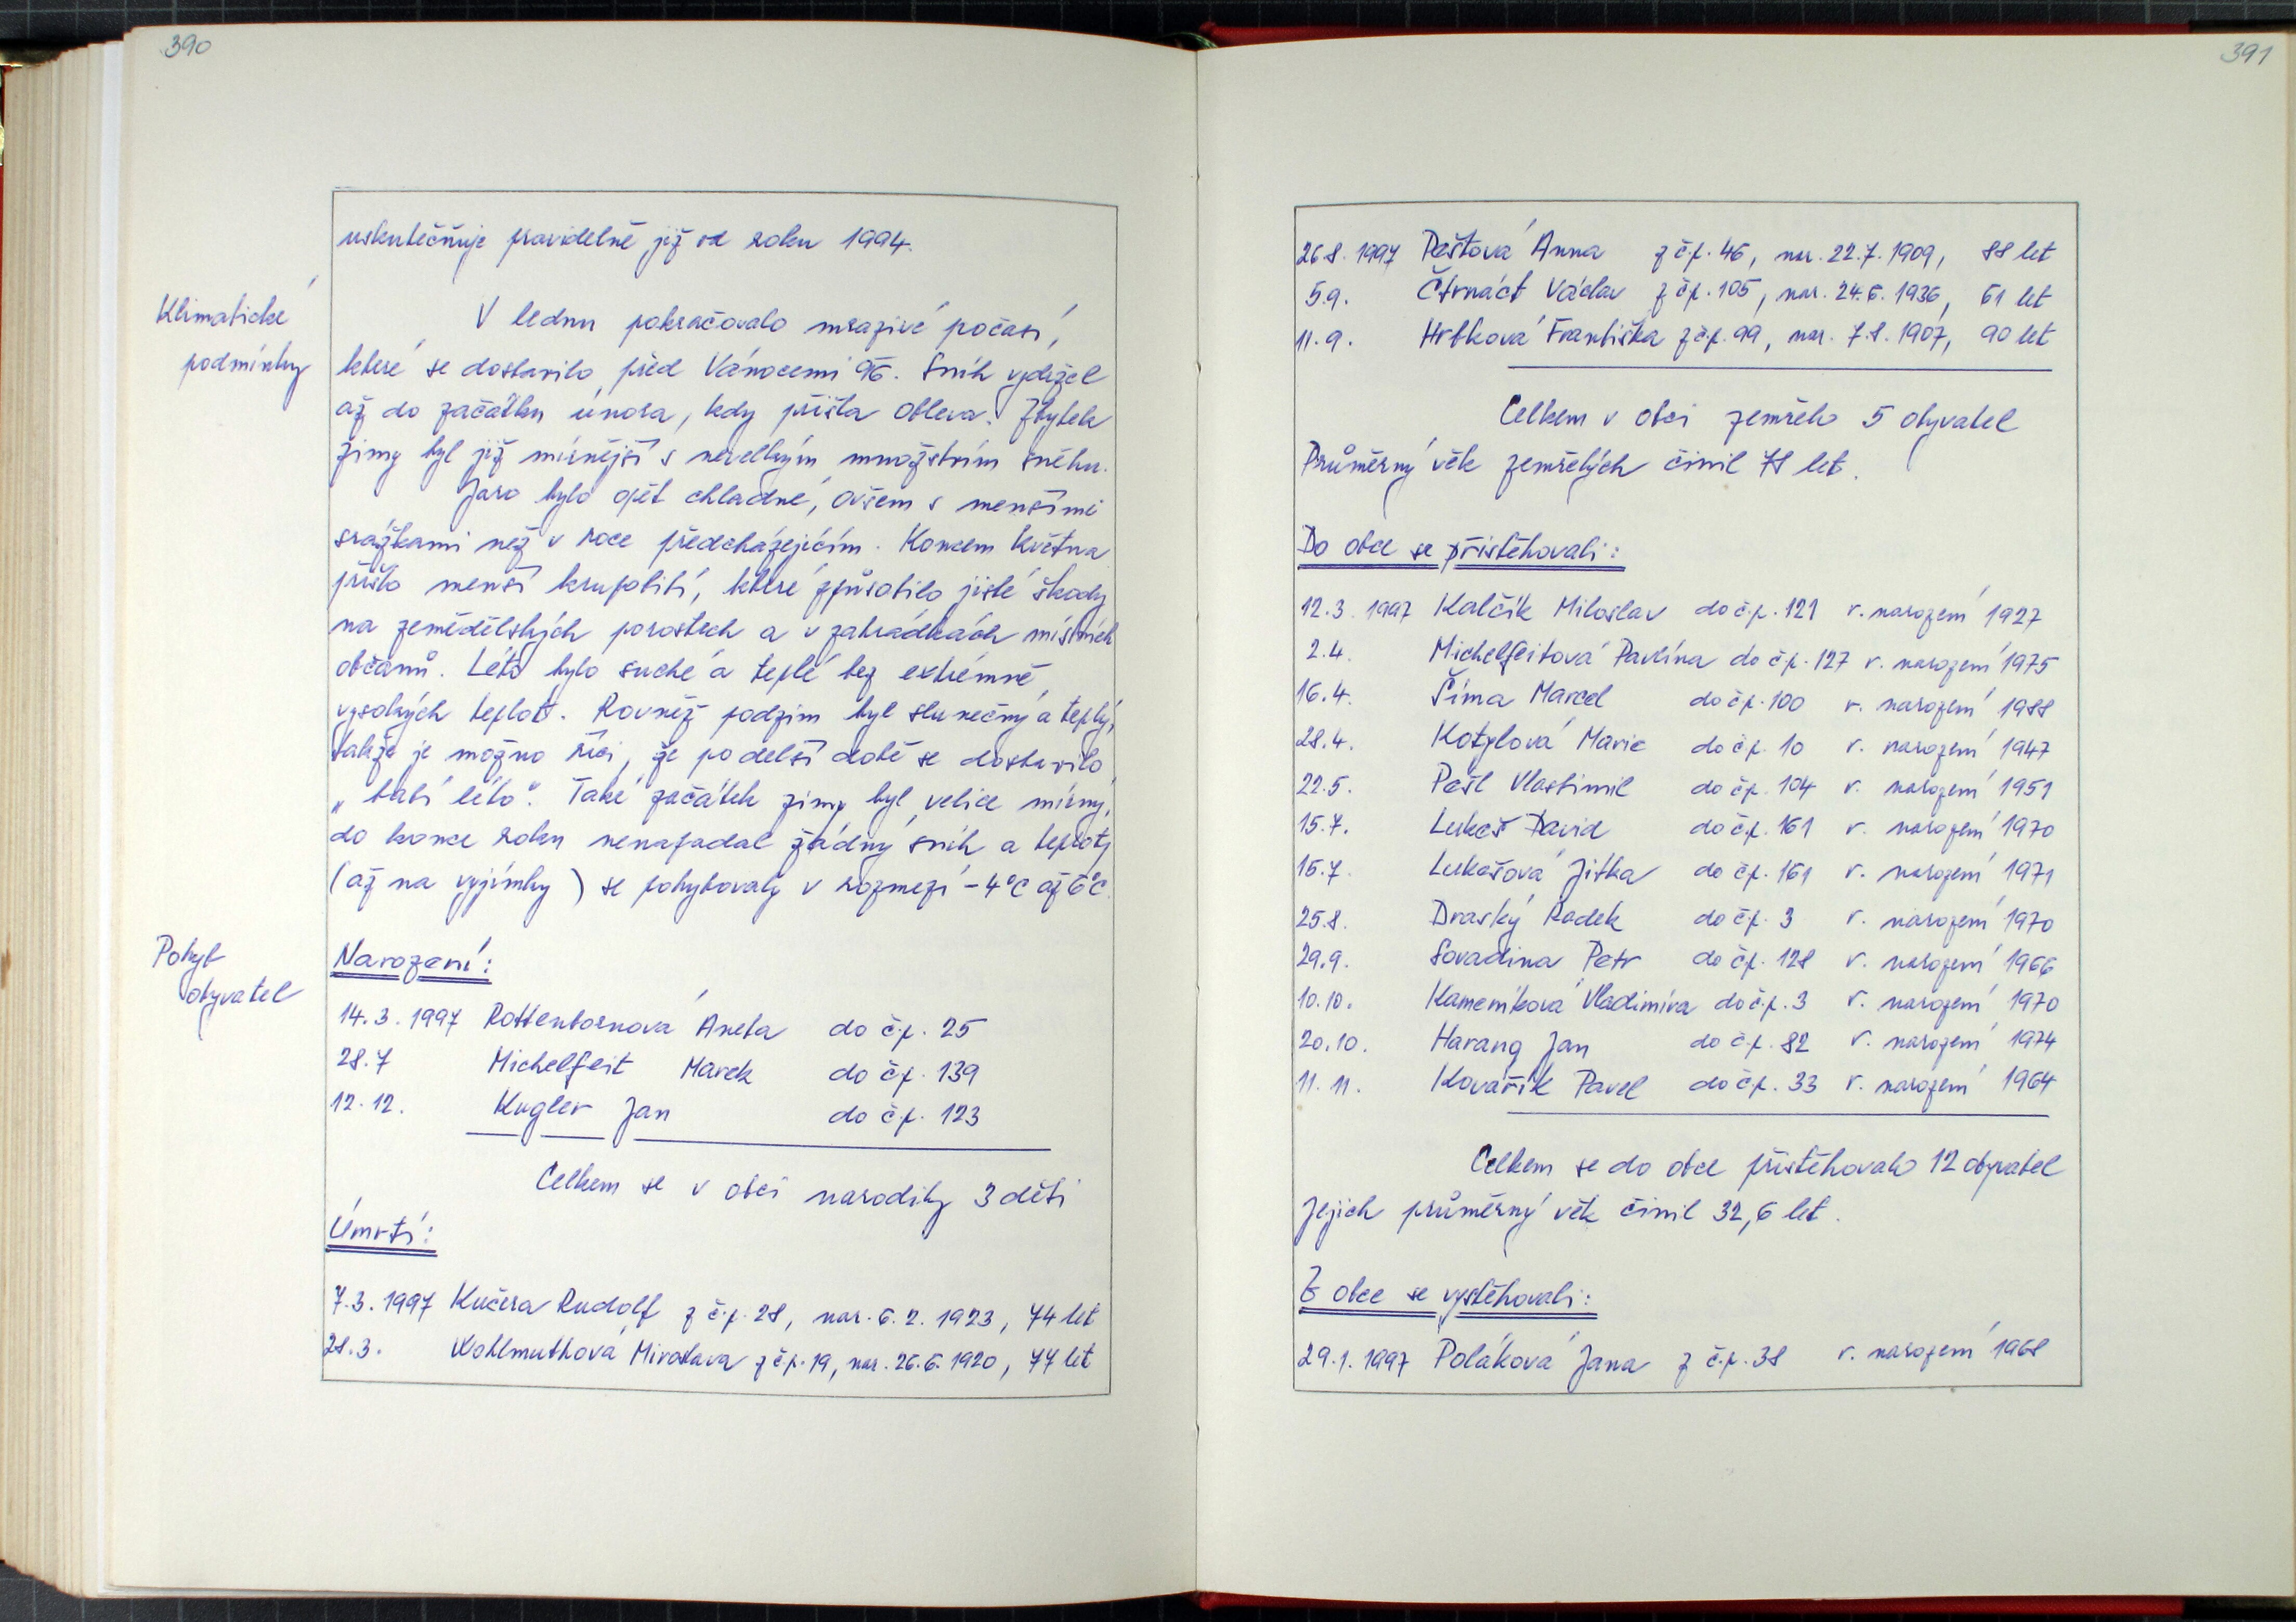 390
uskutečňuje pravidelně již od roku 1994.
Klimatické
podmínky
V lednu pokračovalo mrazivé počasí,
které se dostavilo před Vánocemi 96. Sníh vydržel
až do začátku února, kdy přišla obleva. Zbytek
zimy byl již mírnější s nevelkým množstvím sněhu.
Jaro bylo opět chladné, ovšem s menšími
srážkami než v roce předcházejícím. Koncem května
přišlo menší krupobití, které způsobilo jisté škody
na zemědělských porostech a v zahrádkách místních
občanů. Léto bylo suché a teplé bez extrémně
vysokých teplot. Rovněž podzim byl slunečný a teplý,
takže je možno říci, že po delší době se dostavilo
„babí léto". Také začátek zimy byl velice mírný,
do konce roku nenapadal žádný sníh a teploty
(až na vyjímky) se pohybovaly v rozmezí -4°C až 6°C.
Pohyb
obyvatel
Narození:
14.3.1997 Rottenbornová Aneta do č.p. 25
28.7 Michelfeit Marek do č.p. 139
12.12. Kugler Jan do č.p. 123
Celkem se v obci narodily 3 děti
Úmrtí:
7.3.1997 Kučera Rudolf z č.p. 28, nar. 6.2.1923, 74 let
28.3. Wohlmuthová Miroslava z č.p. 19, nar. 26.6.1920, 77 let
391
26.8.1997 Peštová Anna z č.p. 46, nar. 22.7.1909, 88 let
5.9. Čtrnáct Václav z č.p. 105, nar. 24.6.1936, 61 let
11.9. Hrbková Františka z č.p. 99, nar. 7.8.1907, 90 let
Celkem v obci zemřelo 5 obyvatel
Průměrný věk zemřelých činil 78 let.
Do obce se přistěhovali:
12.3.1997 Kalčík Miloslav do č.p. 121 r. narození 1927
2.4. Michelfeitová Pavlína do č.p. 127 r. narození 1975
16.4. Šíma Marcel do č.p. 100 r. narození 1988
28.4. Kotylová Marie do č.p. 10 r. narození 1947
22.5. Pešl Vlastimil do č.p. 104 r. narození 1951
15.7. Lukeš David do č.p. 161 r. narození 1970
15.7 Lukešová Jitka do č.p. 161 r. narození 1971
25.8. Draský Radek do č.p. 3 r. narození 1970
29.9. Sovadina Petr do č.p. 128 r. narození 1966
10.10. Kameníková Vladimíra do č.p. 3 r. narození 1970
20.10. Harang Jan do č.p. 82 r. narození 1974
11.11. Kovařík Pavel do č.p. 33 r. narození 1964
Celkem se do obce přistěhovalo 12 obyvatel
Jejich průměrný věk činil 32,6 let.
Z obce se vystěhovali:
29.1.1997 Poláková Jana z č.p. 38 r. narození 1968